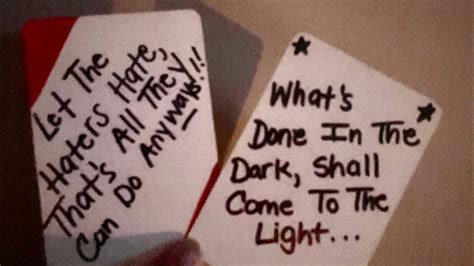 Let The
Haters Hate,
That's All They
Can Do Anyways!!
What's
Done In The
Dark, Shall
Come To The
Light...